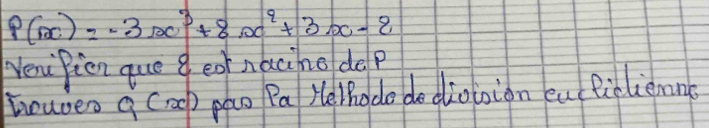 P(x) = -3x³ + 8x² + 3x - 2
Verifier que 2 est racine de P
Trouver Q(x) par la Methode de division euclidienne